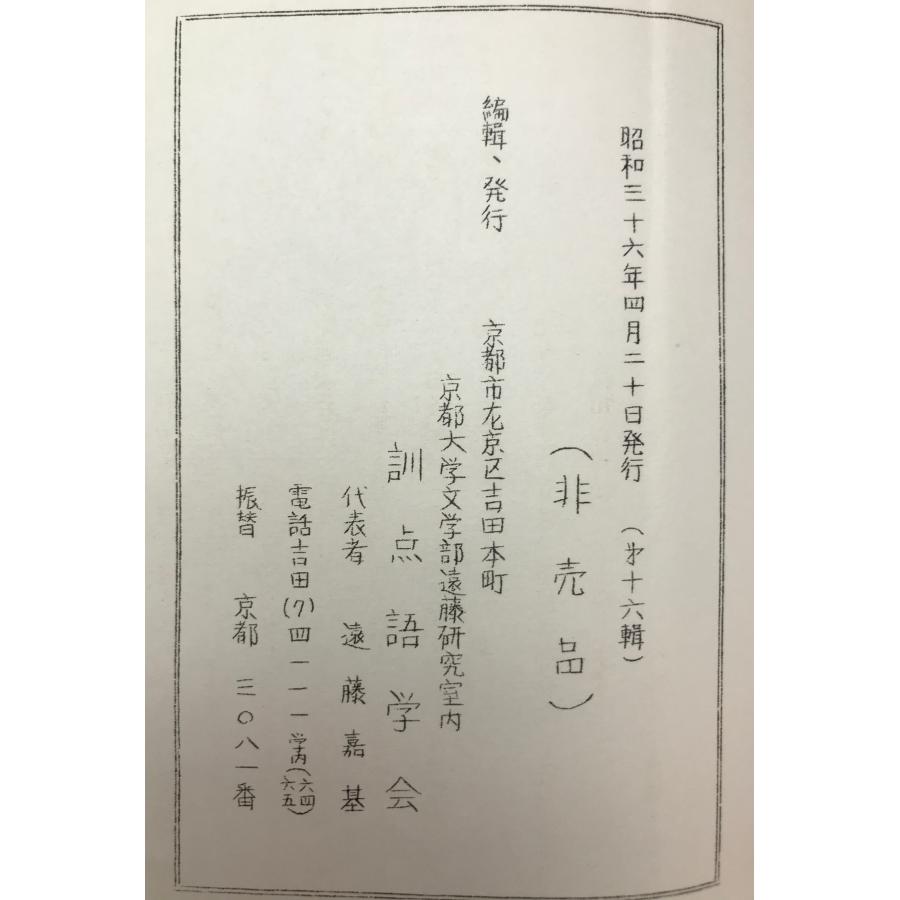 昭和三十六年四月二十日発行 （㐧十六輯）
（非売品）
編輯、発行 京都市左京区吉田本町
京都大学文学部遠藤研究室内
訓点語学会
代表者 遠藤嘉基
電話吉田(7)四一一一学内(六四六五)
振替 京都 三〇八一番